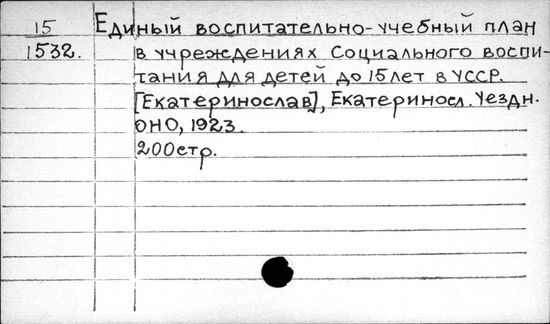 15 Единый воспитательно-учебный план
1532. в учреждениях Социального воспи-
тания для детей до 15 лет в УССР.
[Екатеринослав], Екатериносл. Уездн.
ОНО, 1923.
200стр.